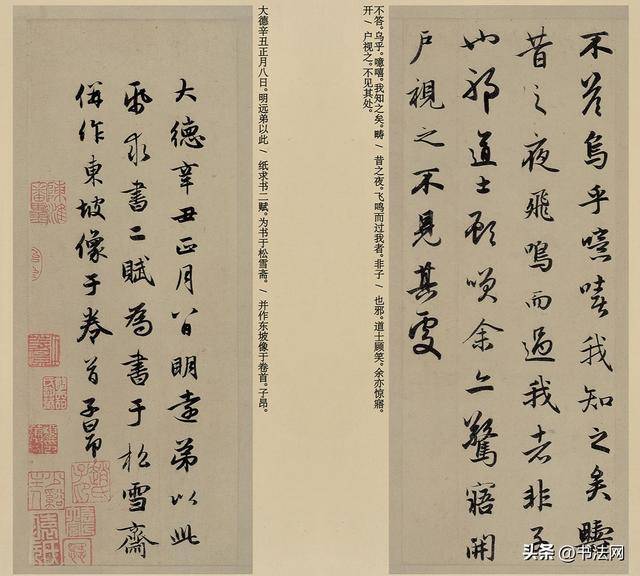 不答烏乎噫嘻我知之矣疇
昔之夜飛鳴而過我者非子
也邪道士顧笑余亦驚寤開
戶視之不見其處
不答。乌乎。噫嘻。我知之矣。畴/昔之夜。飞鸣而过我者。非子/也邪。道士顾笑。余亦惊寤。
开/户视之。不见其处。
大德辛丑正月八日。明远弟以此/纸求书二赋。为书于松雪斋。/并作东坡像于卷首。子昂。
大德辛丑正月八日明遠弟以此
紙求書二賦為書于松雪齋
併作東坡像于卷首子昂
头条 @书法网